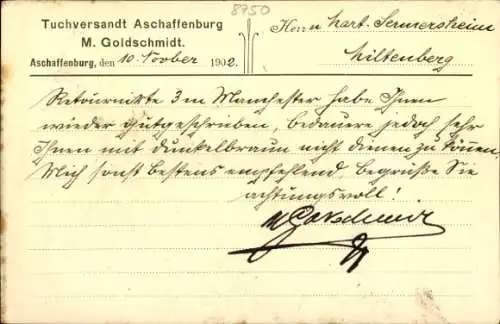 8750
Tuchversandt Aschaffenburg
M. Goldschmidt.
Aschaffenburg, den 10. Novber 1902.
Herrn Mart. Sermersheim
Miltenberg
Retournirte 3 m Manchester habe Ihnen
wieder gutgeschrieben, bedauere jedoch sehr
Ihnen mit dunkelbraun nicht dienen zu können
Mich sonst bestens empfehlend, begrüße Sie
achtungsvoll!
M Goldschmidt